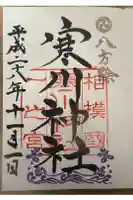 八方除
寒川神社
相模國
一之宮
平成二八年十一月一日